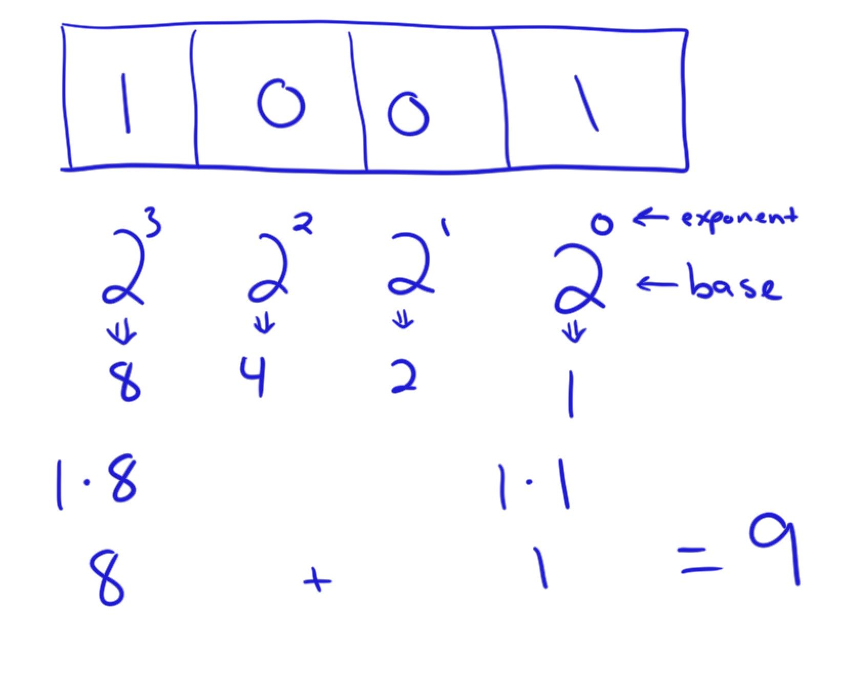 1 0 0 1
2³ 2² 2¹ 2⁰ ← exponent
← base
⇓ ⇓ ⇓ ⇓
8 4 2 1
1·8 1·1
8 + 1 = 9